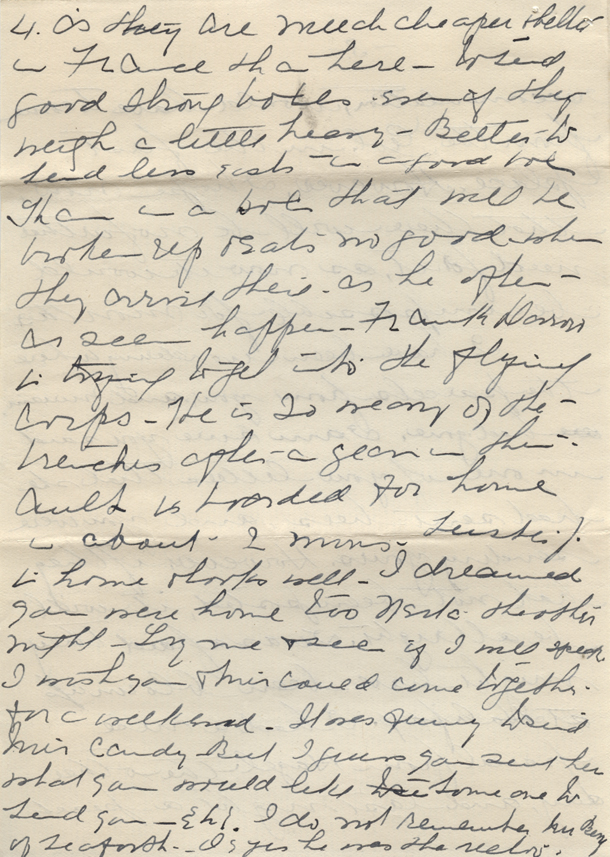 4. as they are much cheaper & better
in France than here - to send
good strong boxes even if they
weigh a little heavy - Better to
send less eats in a good box
than in a box that will be
broken up & eats no good when
they arrive there. as he often
as seen happen - Frank
is trying to get into the flying
corps - He is so weary of the
trenches after a year in them.
is boarded for home
in about 2 mins.
is home & looks well - I dreamed
you were home too the other
night - Try me & see if I will speak
I wish you & could come together
for a weekend - It was funny to send
candy But I guess you sent her
what you would like some one to
send you - Eh!. I do not remember
of Seaforth - I he was the